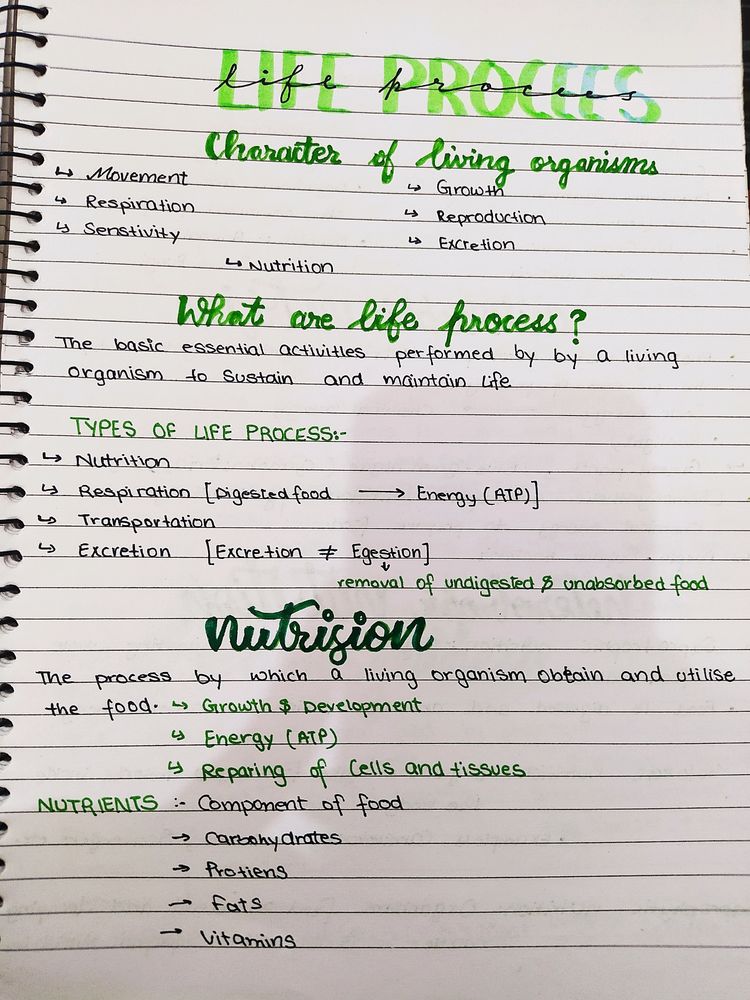 LIFE PROCEES
life procees
Character of living organisms
↳ Movement
↳ Respiration
↳ Senstivity
↳ Growth
↳ Reproduction
↳ Excretion
↳ Nutrition
What are life process?
The basic essential activities performed by by a living
organism to sustain and maintain life
TYPES OF LIFE PROCESS:-
↳ Nutrition
↳ Respiration [Digested food ⟶ Energy (ATP)]
↳ Transportation
↳ Excretion [Excretion ≠ Egestion]
↓
removal of undigested & unabsorbed food
nutrision
The process by which a living organism obtain and utilise
the food. ↳ Growth & Development
↳ Energy (ATP)
↳ Reparing of Cells and tissues
NUTRIENTS :- Component of food
→ Carbohydrates
→ Protiens
→ Fats
→ Vitamins